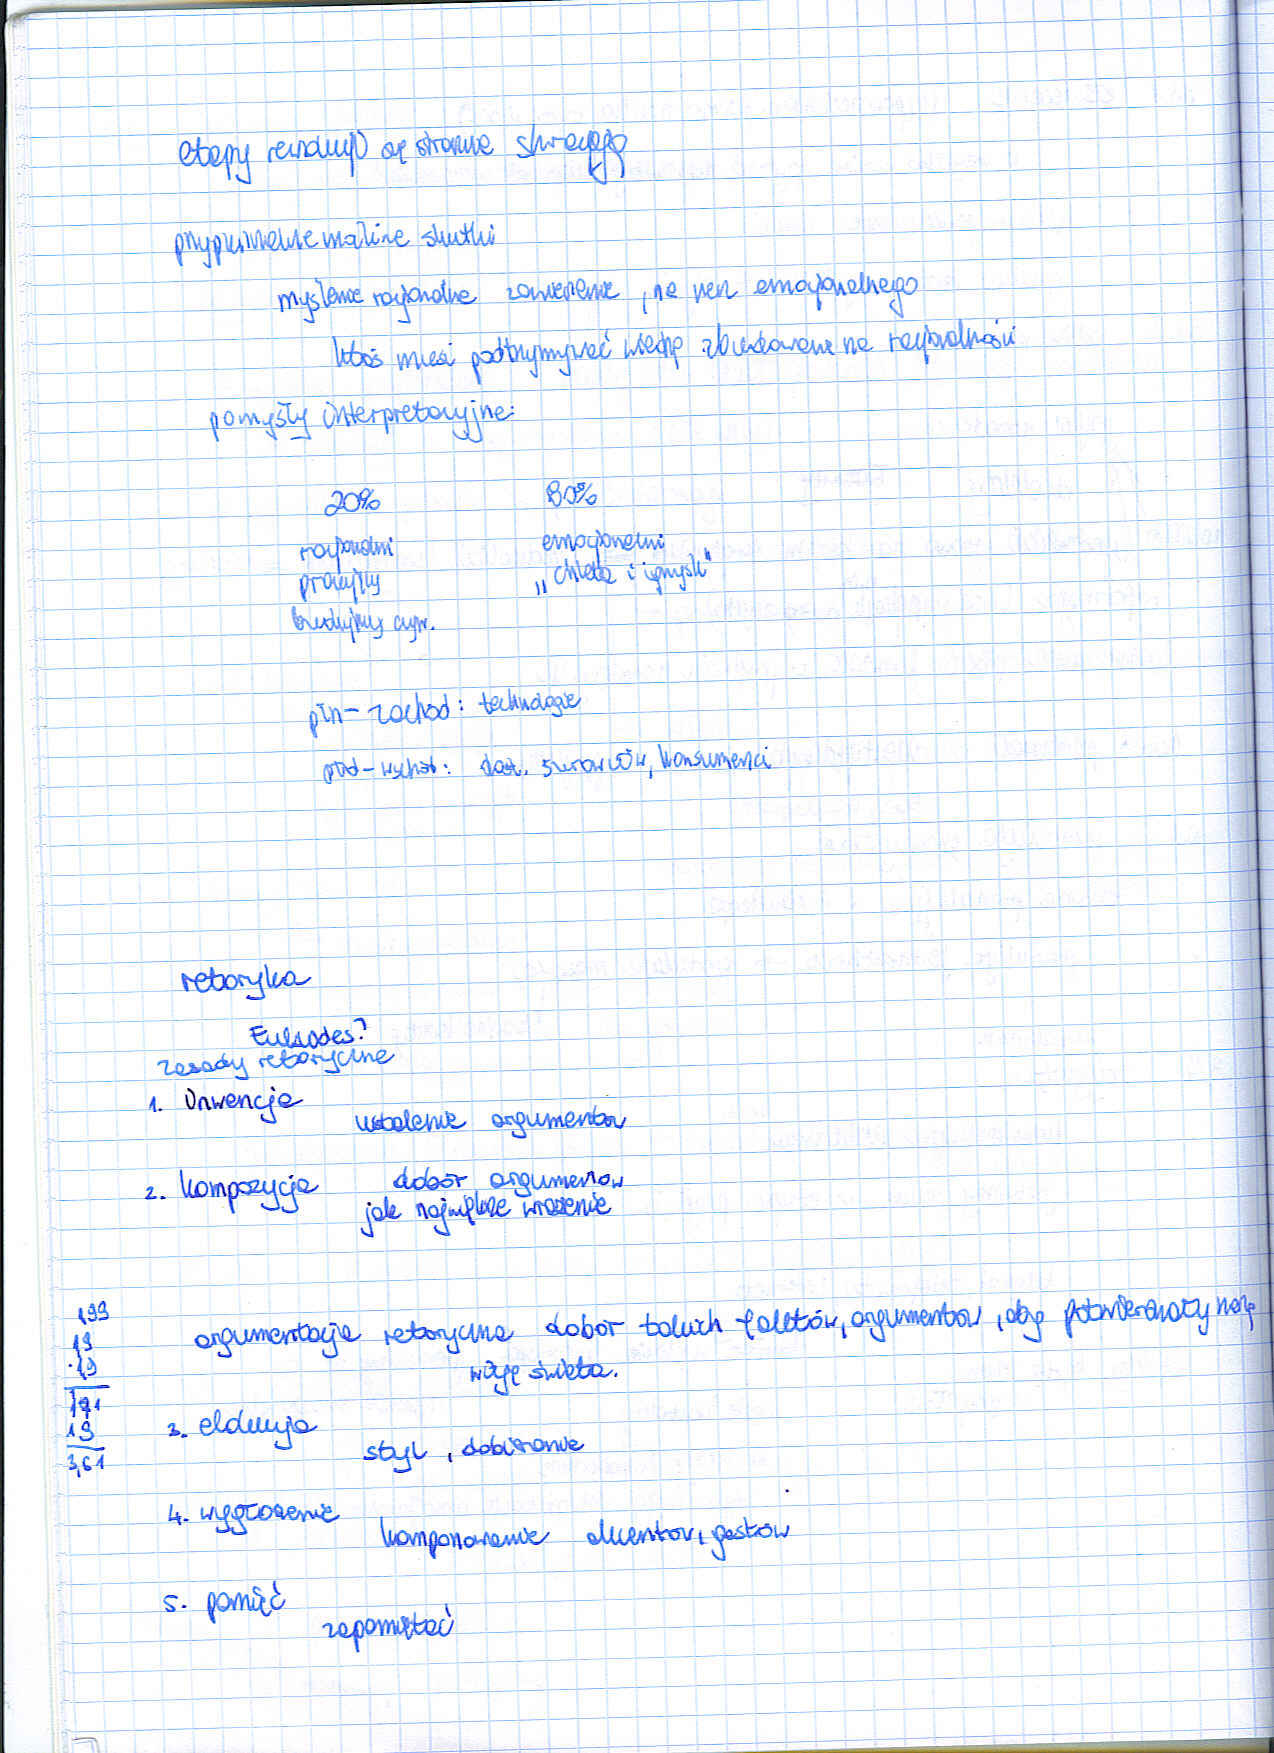 etapy rewolucji się stronie
przypuszczenie ważne skutki
myślenie racjonalne zawieszenie, na rzecz emocjonalnego
ktoś musi podtrzymywać wiedzę zbudowane na racjonalności
pomysły interpretacyjne:
20% 80%
racjonalni emocjonalni
pracujący „chleba i igrzysk"
budujący cyw.
płn-zachód: technologie
płd-wschód: dost. surowców, konsumenci
retoryka
zasady retoryczne
1. inwencja
ustalenie argumentów
2. kompozycja dobór argumentów
jak największe wrażenie
1,99
19
argumentacja retoryczna dobór takich faktów, argumentów, aby potwierdzały naszą
·19
wizję świata.
171
19
3. elokucja
3,61
styl, dobieranie
4. wygłoszenie
komponowanie akcentów, gestów
5. pamięć
zapamiętać